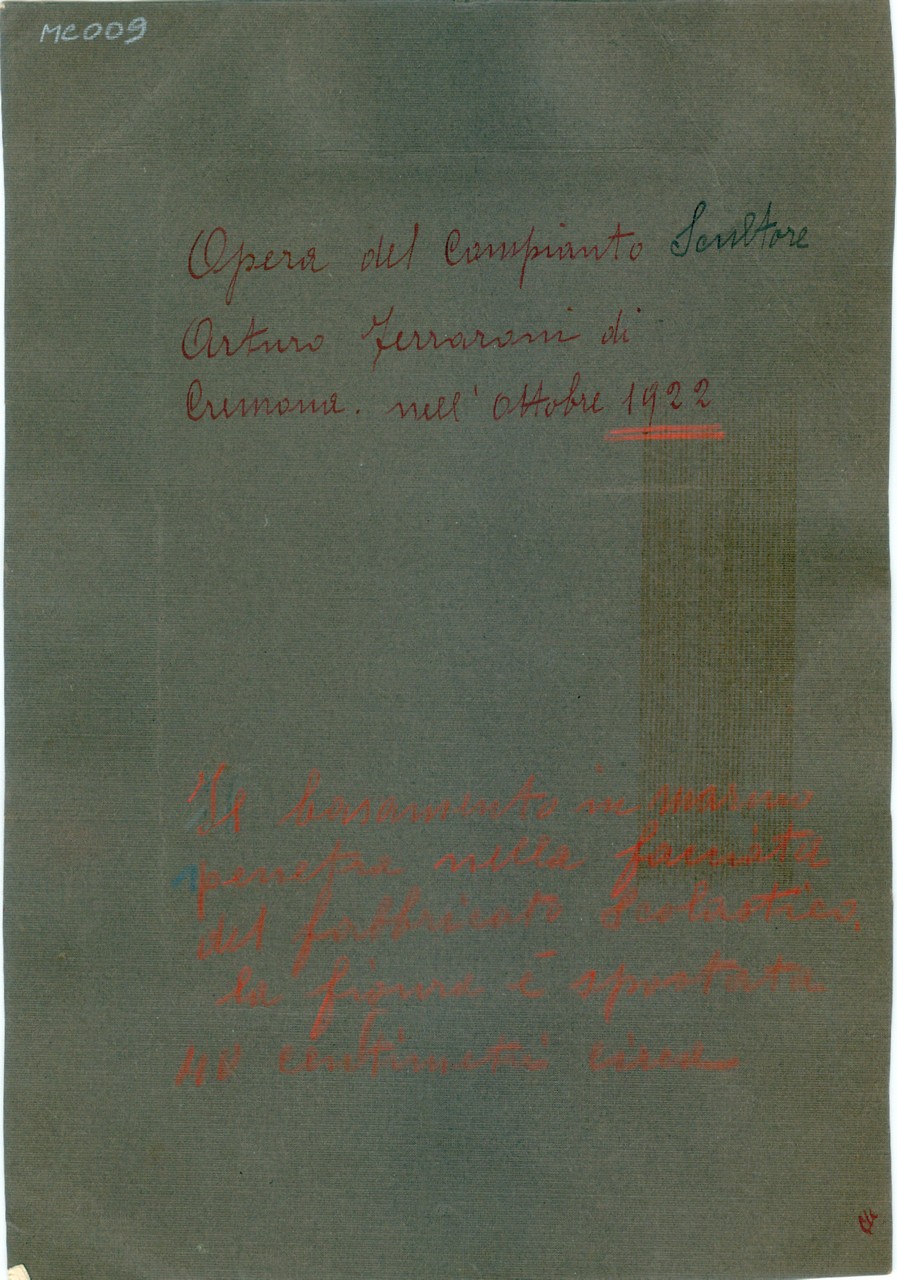 MC009
Opera del Compianto Scultore
Arturo Ferraroni di
Cremona. nell' Ottobre 1922
Il basamento in marmo
penetra nella facciata
del fabbricato Scolastico,
la figura è spostata
40 centimetri circa